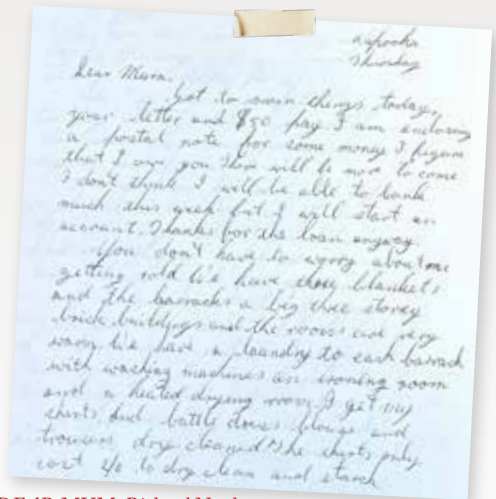 Kapooka
Thursday
Dear Mum,
Got two things today,
your letter and $50 pay I am enclosing
a postal note for some money I figure
that I owe you there will be more to come
I don't think I will be able to bank
much this week but I will start an
account. Thanks for the loan anyway.
You don't have to worry about me
getting cold we have three blankets
and the barracks a big three storey
brick buildings and the rooms are very
warm we have a laundry to each barrack
with washing machines an ironing room
and a heated drying room I get my
shirts and battle dress blouse and
trousers dry cleaned the shirts only
cost to dry clean and starch
DEAR MUM: